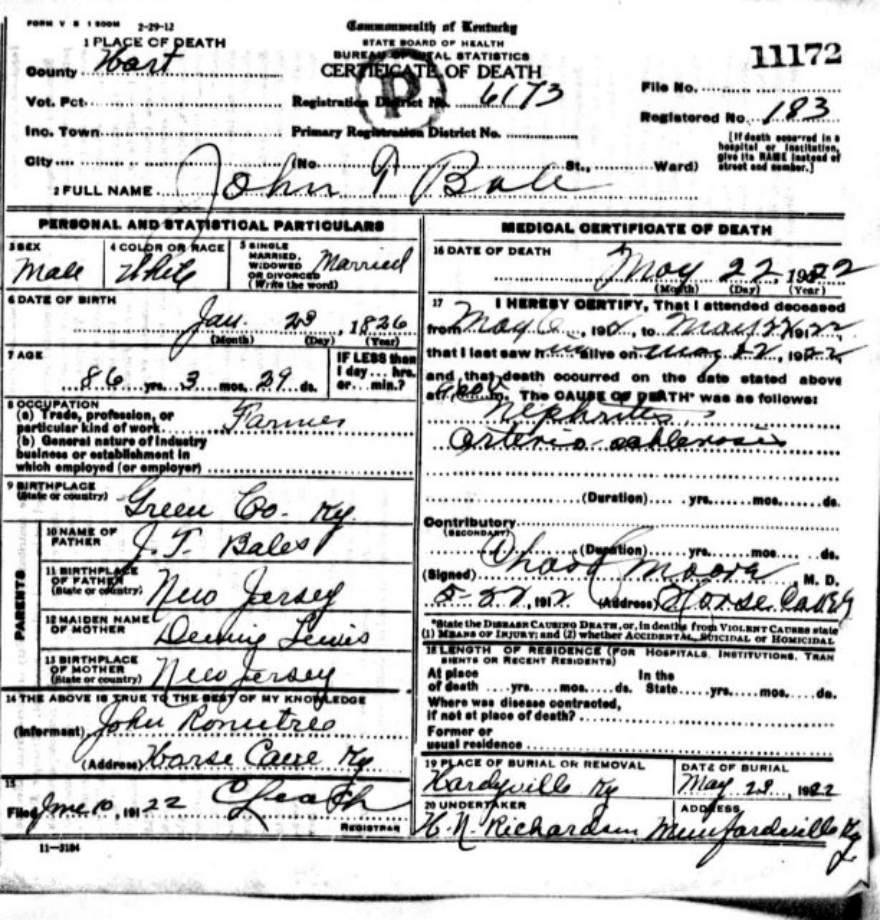 FORM V S 1 500M 2-29-12
Commonwealth of Kentucky
STATE BOARD OF HEALTH
BUREAU OF VITAL STATISTICS
CERTIFICATE OF DEATH
11172
1 PLACE OF DEATH
County Hart
Vot. Pct.
Inc. Town
City
Registration District No. 6173
Primary Registration District No.
(No. St., Ward)
File No.
Registered No. 183
[If death occurred in a
hospital or institution,
give its NAME instead of
street and number.]
P
2 FULL NAME John T Bale
PERSONAL AND STATISTICAL PARTICULARS
3 SEX
Male
4 COLOR OR RACE
White
5 SINGLE
MARRIED,
WIDOWED
OR DIVORCED
(Write the word)
Married
6 DATE OF BIRTH
Jan. 23, 1826
(Month) (Day) (Year)
7 AGE
86 yrs. 3 mos. 29 ds.
IF LESS than
1 day... hrs.
or... min.?
8 OCCUPATION
(a) Trade, profession, or
particular kind of work Farmer
(b) General nature of industry
business or establishment in
which employed (or employer)
9 BIRTHPLACE
(State or country) Green Co. Ky.
PARENTS
10 NAME OF
FATHER J. T. Bales
11 BIRTHPLACE
OF FATHER
(State or country) New Jersey
12 MAIDEN NAME
OF MOTHER Lewis
13 BIRTHPLACE
OF MOTHER
(State or country) New Jersey
14 THE ABOVE IS TRUE TO THE BEST OF MY KNOWLEDGE
(Informant) John Rountree
(Address) Horse Cave Ky
15
Filed June 10, 191 22
REGISTRAR
11-3184
MEDICAL CERTIFICATE OF DEATH
16 DATE OF DEATH
May 22, 1922
(Month) (Day) (Year)
17 I HEREBY CERTIFY, That I attended deceased
from May 6, 191 , to May 22 191 22
that I last saw him alive on May 22, 1922
and that death occurred on the date stated above
at m. The CAUSE OF DEATH* was as follows:
Nephritis
Arterio schlerosis
(Duration) yrs. mos. ds.
Contributory
(SECONDARY)
(Duration) yrs. mos ds.
(Signed) Chas Moore, M. D.
5-22, 1912 (Address) Horse Cave Ky
*State the DISEASE CAUSING DEATH, or, in deaths from VIOLENT CAUSES state
(1) MEANS OF INJURY; and (2) whether ACCIDENTAL, SUICIDAL or HOMICIDAL
18 LENGTH OF RESIDENCE (FOR HOSPITALS, INSTITUTIONS, TRAN
SIENTS OR RECENT RESIDENTS)
At place In the
of death yrs. mos. ds. State yrs. mos. ds.
Where was disease contracted,
if not at place of death?
Former or
usual residence
19 PLACE OF BURIAL OR REMOVAL
Hardyville Ky
DATE OF BURIAL
May 23, 1922
20 UNDERTAKER
H. N. Richardson
ADDRESS
Munfordville Ky